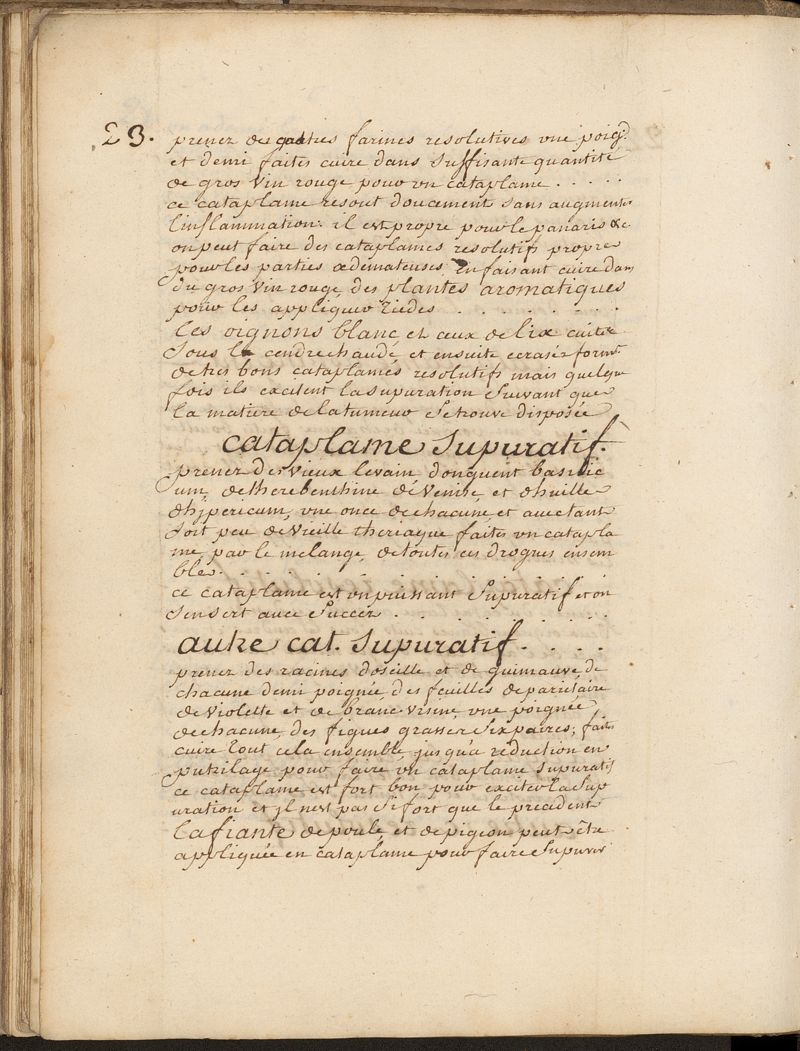 23. prenez des quatres farines resolutives une poig.
et demi faites cuire dans suffisante quantité
de gros vin rouge pour un cataplame . . . . .
ce cataplame resout doucement sans augmenter
l'inflammation. il est propre pour le panaris &c.
on peut faire des cataplames resolutifs propre
pour les parties œdemateuses en faisant cuire dans
du gros vin rouge des plantes aromatiques
pour les appliquer tiedes . . . . . . . .
les oignons blanc, et ceux de lix cuitte
sous la cendre chaude, et ensuite ecrasés forme
de tres bons cataplames resolutifs mais quelque
fois ils excitent la supuration suivant que
la matiere de la tumeur se trouve disposée
cataplame supuratif.
prenez des vieux levain donguent basilic
um, de therebenthine de Venise, et dhuille
dhypericum, une once de chacune et avec tant
soit peu de vieille theriaque faites un catapla
me, par le mélange, de toutes ces drogues ensem
ble. . . . . . . . . . . .
ce cataplame est un puissant supuratif et on
sen sert avec succez . . . . . . .
autre cat. supuratif. . . . .
prenez des racines doseille et de guimauve de
chacune demi poignée, des feuilles de parietaire
de violette et de branc-ursine, une poignée
de chacune, des figues grasses six paires; faites
cuire tout cela ensemble jusqu'a reduction en
putrilage pour faire un cataplame supuratif
ce cataplame est fort bon pour exciter la sup
uration et il nest pas si fort que le precedent
la fiante de poule et de pigeon peut être
appliquée en cataplame pour faire supurer